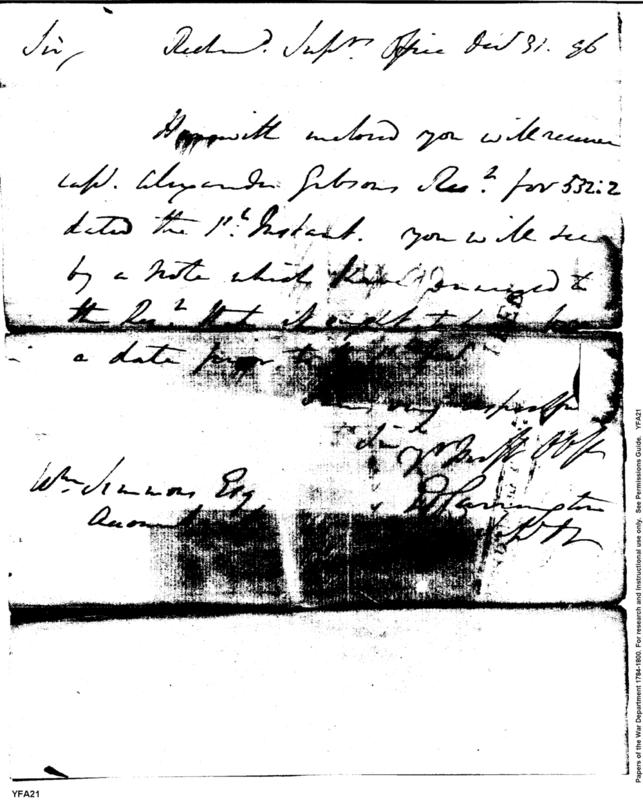 Sir, Richmd. Supvrs Office Decr 31. 96
Herewith inclosed you will receive
capt. Alexander Gibsons Rect. for 532:2
dated the 1st Instant. you will see
by a Note which I have annexed to
the Rect. that it ought to have
a date prior to
am very respectfully
Sir
yr Obt
Wm Simmons Esq
Accomt
E Carrington
Papers of the War Department 1784-1800. For research and instructional use only. See Permissions Guide. YFA21
YFA21